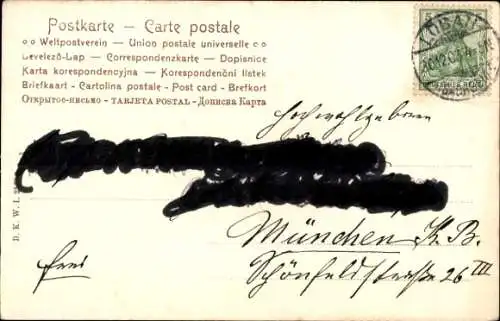 Postkarte — Carte postale
○ Weltpostverein — Union postale universelle ○ ○
Levelező-Lap — Correspondenzkarte — Dopisnice
Karta korespondencyjna — Korespondenční lístek
Briefkaart - Cartolina postale - Post card - Brefkort
Открытое-письмо - TARJETA POSTAL - Дописна Карта
Hochwohlgeboren
München K. B.
Schönfeldstraße 26 III
frei
D. K. W. I.